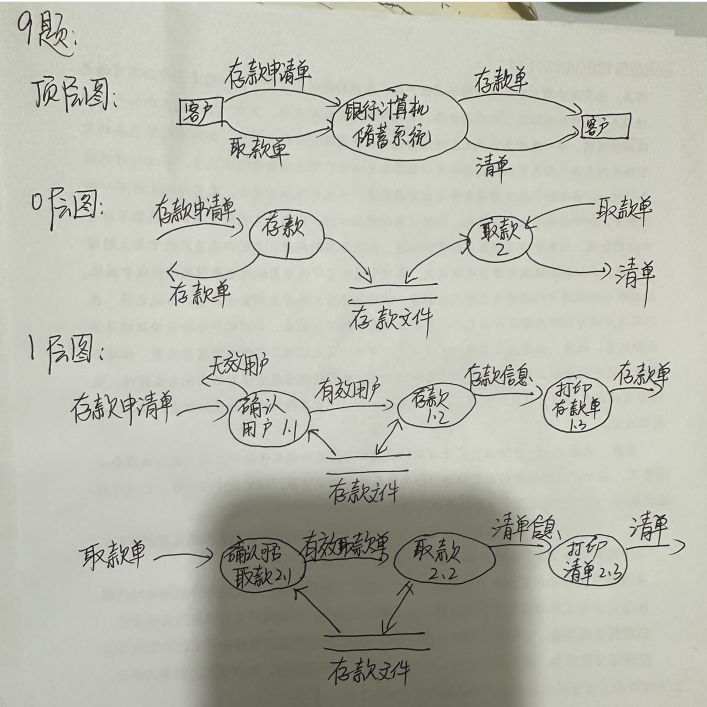 9题:
顶层图:
存款申请单
存款单
客户
银行计算机
储蓄系统
客户
取款单
清单
0层图:
存款申请单
存款
1
取款
2
取款单
存款单
清单
存款文件
1层图:
无效用户
存款申请单
确认
用户1.1
有效用户
存款
1.2
存款信息
打印
存款单
1.3
存款单
存款文件
取款单
确认可否
取款2.1
有效取款单
取款
2.2
清单信息
打印
清单2.3
清单
存款文件